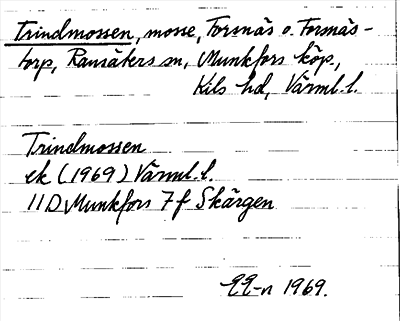 Trindmossen, mosse, Forsnäs o. Forsnäs-
torp, Ransäters sn, Munkfors köp.,
Kils hd, Värml. l.
Trindmossen
ek (1969) Värml. l.
11D Munkfors 7f Skärgen
EE-n 1969.